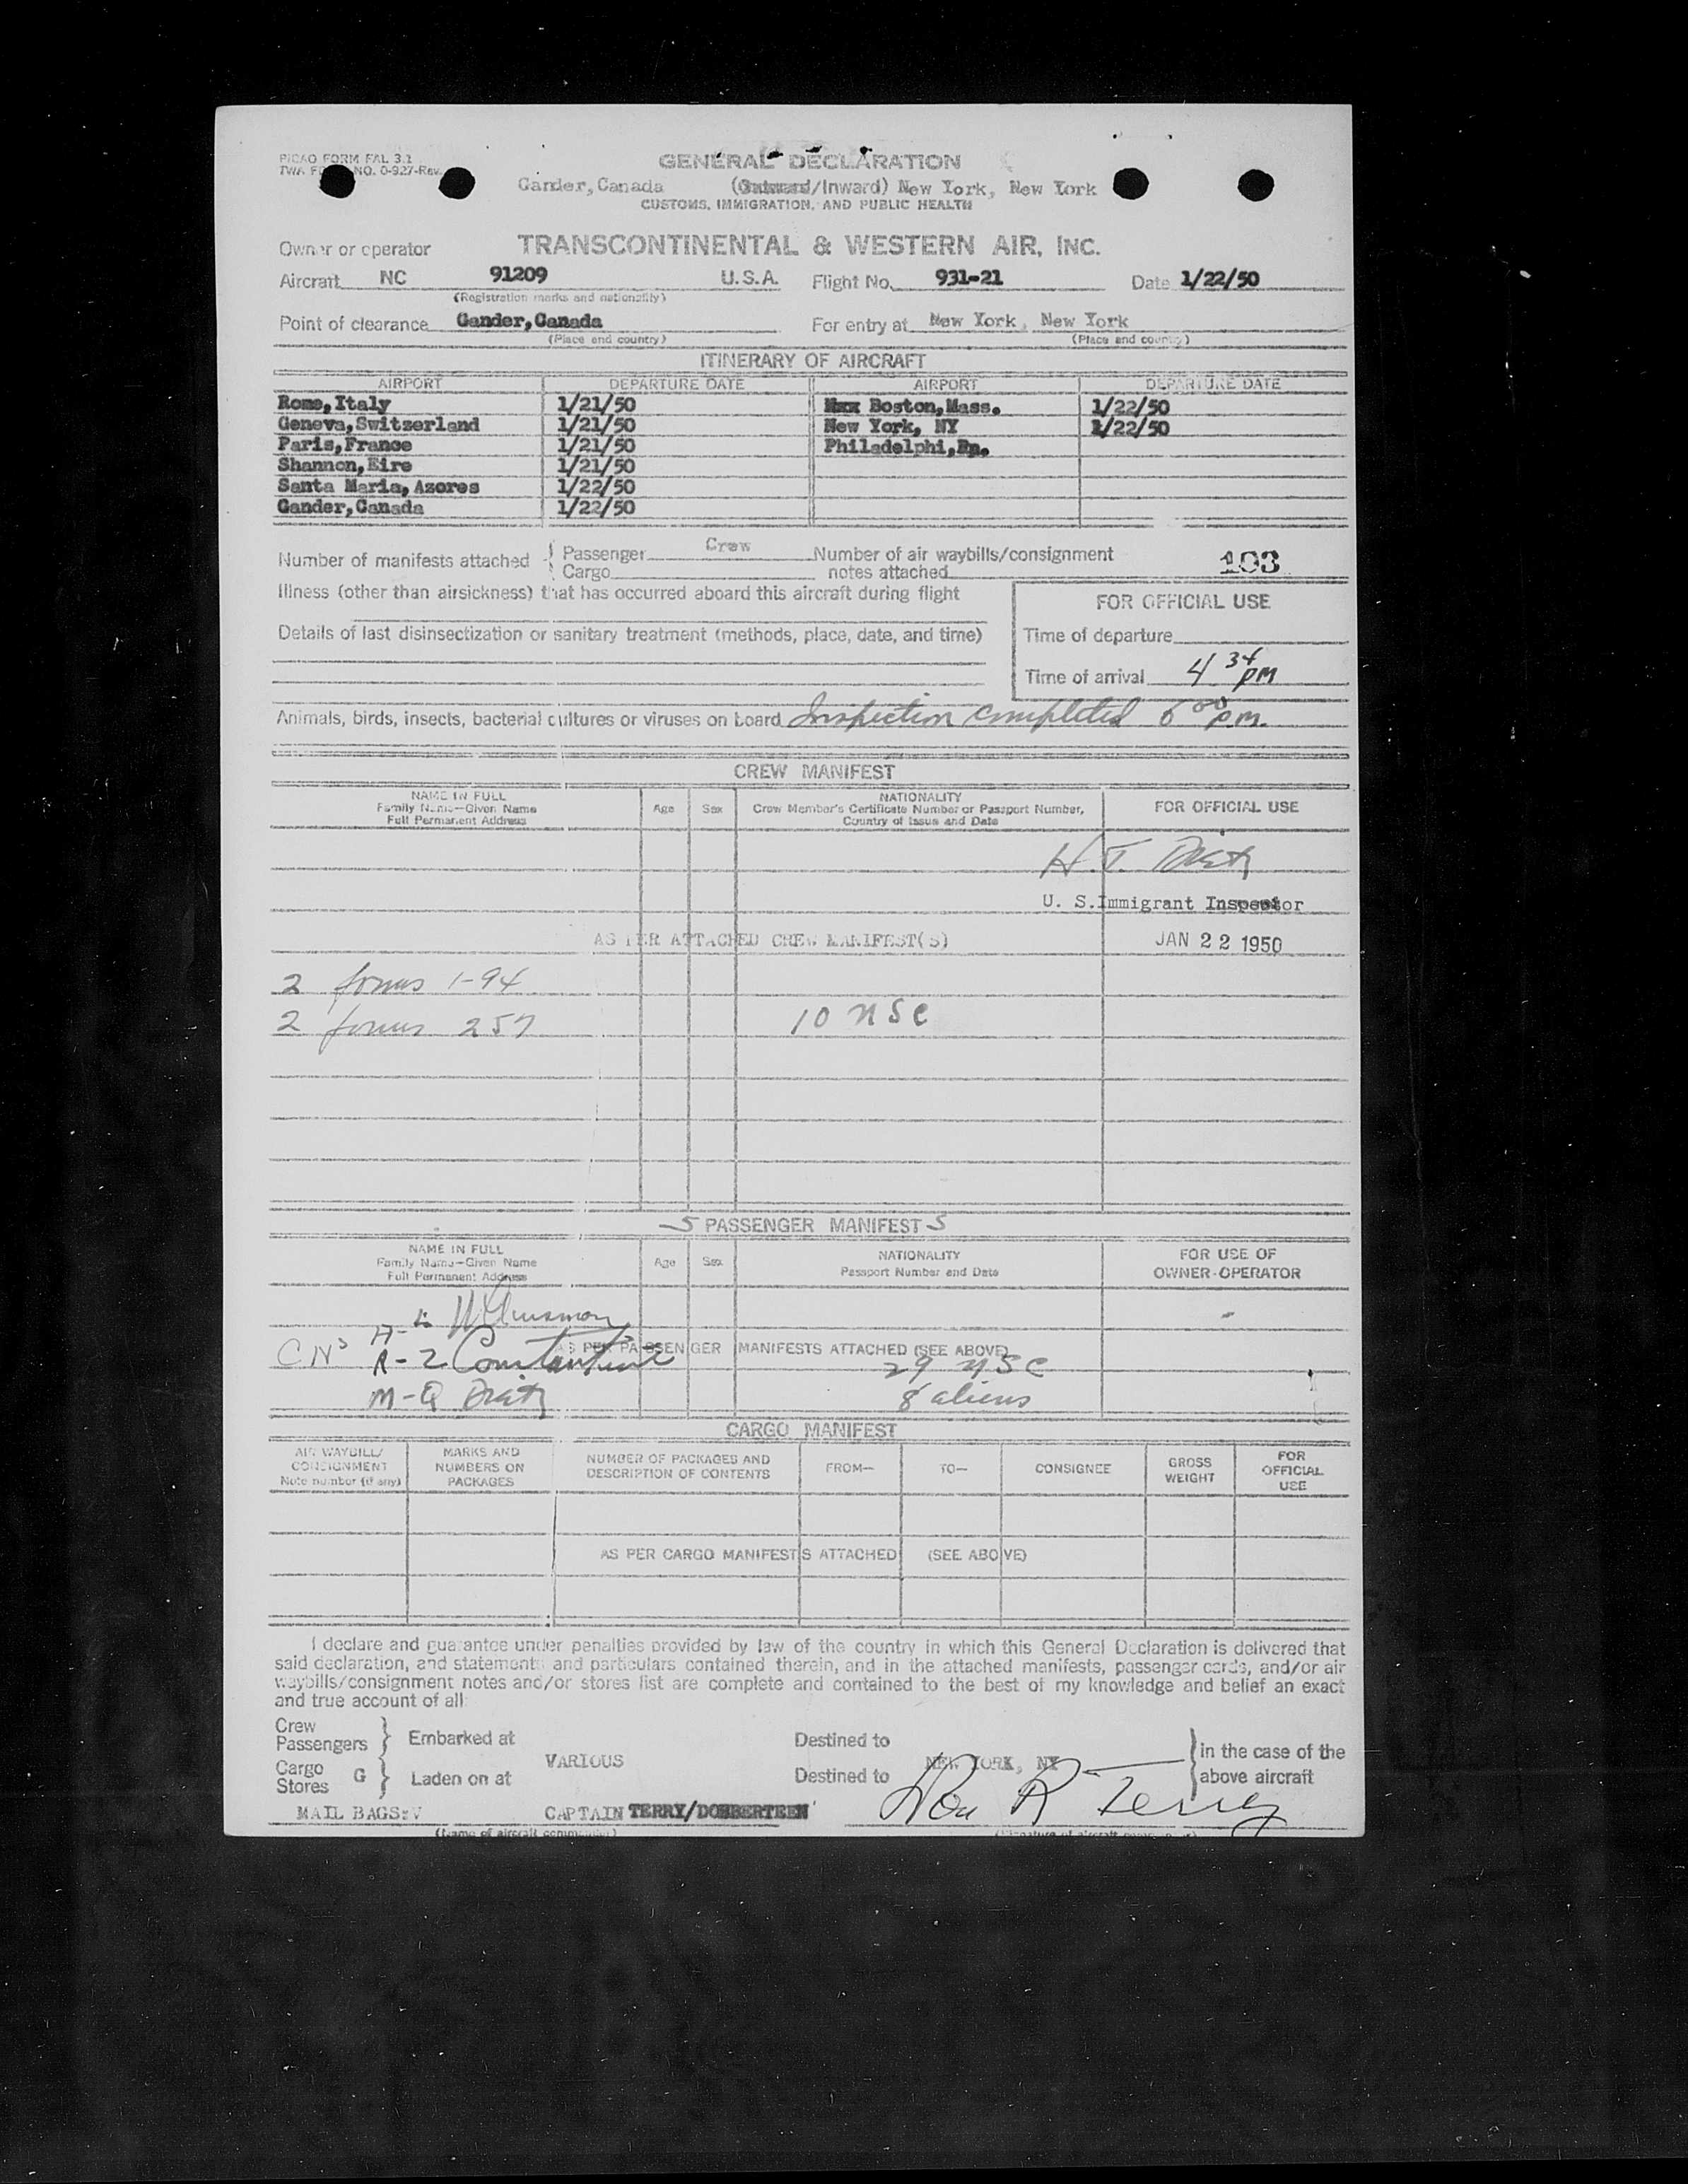 PICAO FORM FAL 3.1
TWA NO. 0-927-Rev.
GENERAL DECLARATION
Gander, Canada (Outward/Inward) New York, New York
CUSTOMS, IMMIGRATION, AND PUBLIC HEALTH
Owner or operator TRANSCONTINENTAL & WESTERN AIR, INC.
Aircraft NC 91209 U.S.A. Flight No. 931-21 Date 1/22/50
(Registration marks and nationality)
Point of clearance Gander, Canada For entry at New York, New York
(Place and country) (Place and country)
ITINERARY OF AIRCRAFT
AIRPORT DEPARTURE DATE AIRPORT DEPARTURE DATE
Rome, Italy 1/21/50 Boston, Mass. 1/22/50
Geneva, Switzerland 1/21/50 New York, NY 1/22/50
Paris, France 1/21/50 Philadelphi, Pa.
Shannon, Eire 1/21/50
Santa Maria, Azores 1/22/50
Gander, Canada 1/22/50
Number of manifests attached { Passenger Crew Number of air waybills/consignment 103
Cargo notes attached
Illness (other than airsickness) that has occurred aboard this aircraft during flight
FOR OFFICIAL USE
Details of last disinsectization or sanitary treatment (methods, place, date, and time)
Time of departure
Time of arrival 4 34 PM
Animals, birds, insects, bacterial cultures or viruses on board Inspection completed 6 00 p.m.
CREW MANIFEST
NAME IN FULL
Family Name—Given Name
Full Permanent Address
Age Sex
NATIONALITY
Crew Member's Certificate Number or Passport Number,
Country of Issue and Date
FOR OFFICIAL USE
H.T.
U. S. Immigrant Inspector
AS PER ATTACHED CREW MANIFEST(S) JAN 22 1950
2 forms 1-94
2 forms 257 10 USC
5 PASSENGER MANIFEST S
NAME IN FULL
Family Name—Given Name
Full Permanent Address
Age Sex
NATIONALITY
Passport Number and Date
FOR USE OF
OWNER-OPERATOR
AS PER PASSENGER MANIFESTS ATTACHED (SEE ABOVE)
R-Z Constantine 29 USC
M-Q 8 aliens
CARGO MANIFEST
AIR WAYBILL/
CONSIGNMENT
Note number (if any)
MARKS AND
NUMBERS ON
PACKAGES
NUMBER OF PACKAGES AND
DESCRIPTION OF CONTENTS
FROM— TO— CONSIGNEE
GROSS
WEIGHT
FOR
OFFICIAL
USE
AS PER CARGO MANIFESTS ATTACHED (SEE ABOVE)
I declare and guarantee under penalties provided by law of the country in which this General Declaration is delivered that
said declaration, and statements and particulars contained therein, and in the attached manifests, passenger cards, and/or air
waybills/consignment notes and/or stores list are complete and contained to the best of my knowledge and belief an exact
and true account of all
Crew
Passengers } Embarked at Destined to
VARIOUS NEW YORK, NY
Cargo
Stores G } Laden on at Destined to
} in the case of the
above aircraft
MAIL BAGS:V CAPTAIN TERRY/DOBBERTEEN Don R Terry
(Name of aircraft commander) (Signature of aircraft commander)